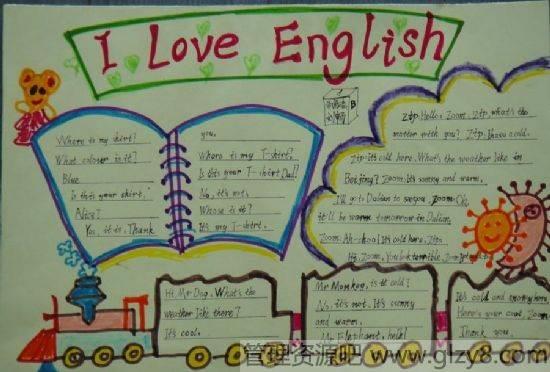 I Love English
Where is my shirt?
What colour is it?
Blue
Is this your shirt,
Alice?
Yes, it is. Thank
you.
Where is my T-shirt?
Is this your T-shirt, Dad?
No, it's not.
Whose is it?
It's my T-shirt.
B
Zip: Hello, Zoom. Zip, what's the
matter with you? Zip: I have cold.
Zip: It's cold here. What's the weather like in
Beijing? Zoom: It's sunny and warm.
I'll go to Dalian to see you. Zoom: OK,
it'll be warm tomorrow in Dalian.
Zoom: Ah-choo! It's cold here, Zip.
Zoom. You look terrible.
Hi, Mr Dog. What's the
weather like there?
It's cool.
Mr Monkey, is it cold?
No, it's not. It's sunny
and warm.
Mr Elephant, hello!
It's cold and snowy here.
Here's your coat, Zoom.
Thank you.
管理资源吧 www.glzy8.com